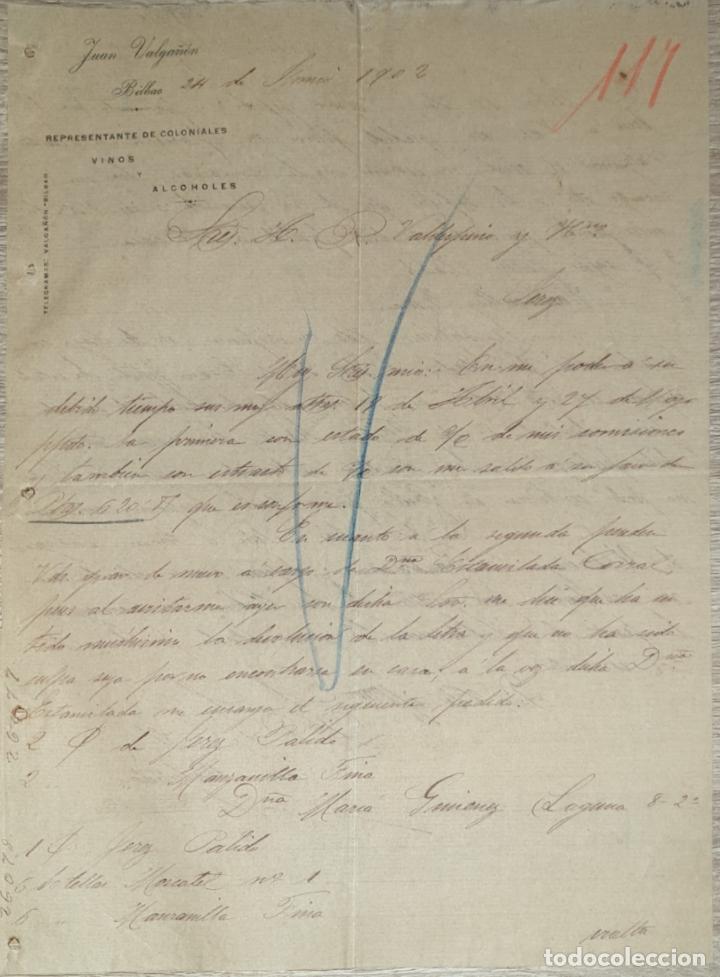 Juan Valgañón
Bilbao 24 de 1902
117
REPRESENTANTE DE COLONIALES
VINOS
Y
ALCOHOLES
TELEGRAMAS: VALGAÑÓN-BILBAO
Sres. H. R. Valdespino y Hno
Jerez
Muy Sres. mios: En mi poder a su
debido tiempo sus 18 de Abril y 27 de Mayo
ppdo. la primera con estado de % de mis comisiones
y tambien con extracto de con mi saldo a su favor de
Ptas. 620 que es conforme.
En cuanto a la segunda pueden
Vds. girar de nuevo a cargo de Dña Estanislada Corral
pues al avistarme ayer con dicha me dice que ha
sentido muchisimo la devolucion de la letra y que no ha sido
culpa suya por no encontrarse en casa, a la vez dicha Dña
Estanislada me encarga el siguiente pedido.
2 de Jerez Palido
2 Manzanilla Fina
Dña Maria Gimenez Laguna 8-2º
1 Jerez Palido
6 botellas Moscatel nº 1
6 Manzanilla Fina
vuelta
todocoleccion